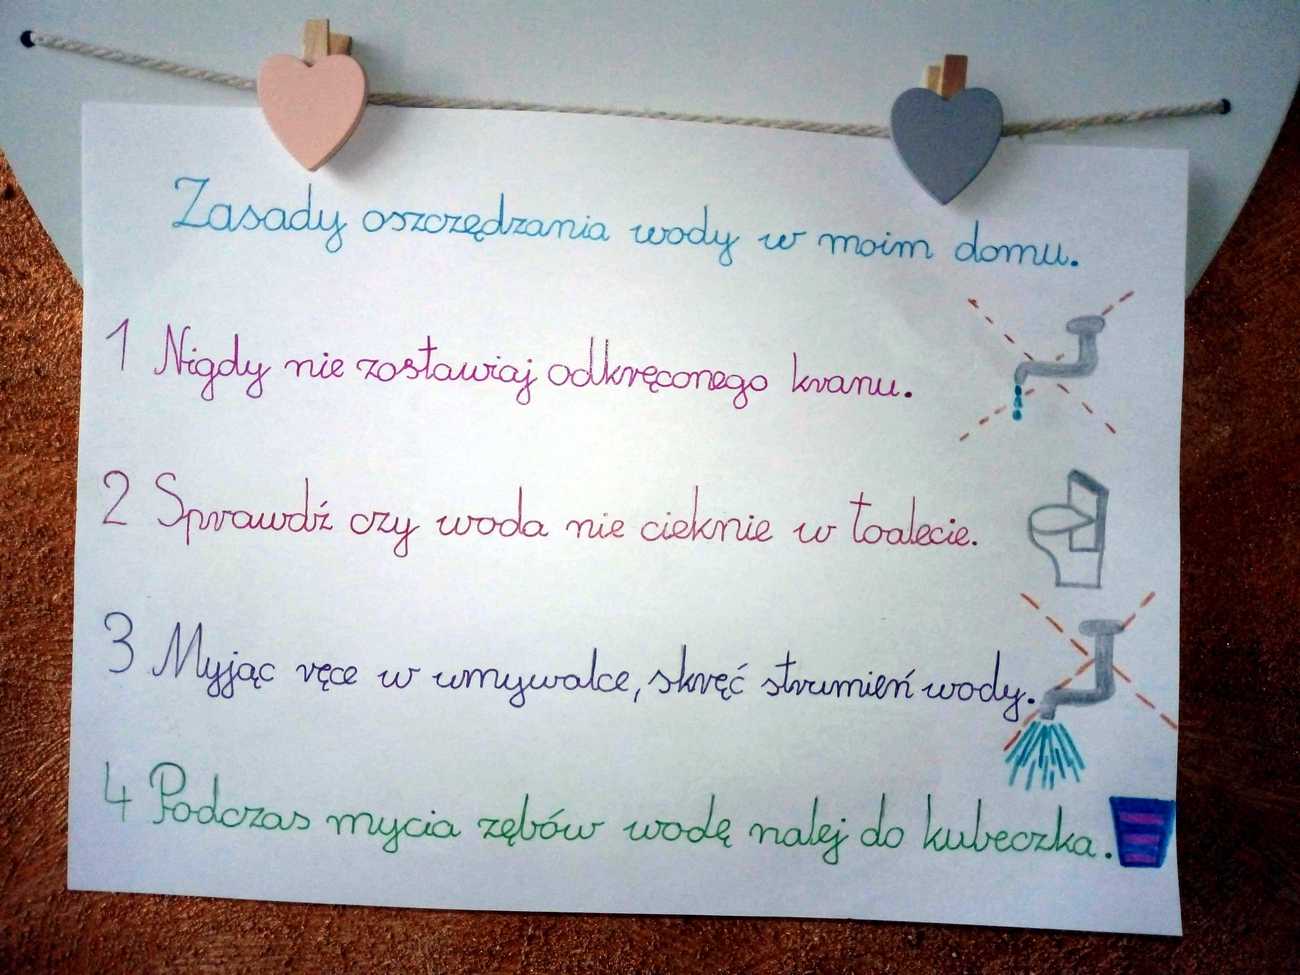 Zasady oszczędzania wody w moim domu.
1 Nigdy nie zostawiaj odkręconego kranu.
2 Sprawdź czy woda nie cieknie w toalecie.
3 Myjąc ręce w umywalce, skręć strumień wody.
4 Podczas mycia zębów wodę nalej do kubeczka.